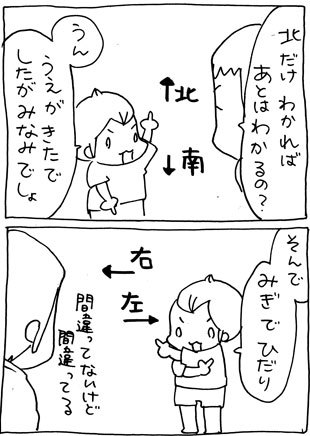 北だけ わかれば
あとはわかるの?
↑北
↓南
うん
うえが きたで
したが みなみでしょ
そんで
みぎで ひだり
←右
左→
間違ってないけど
間違ってる